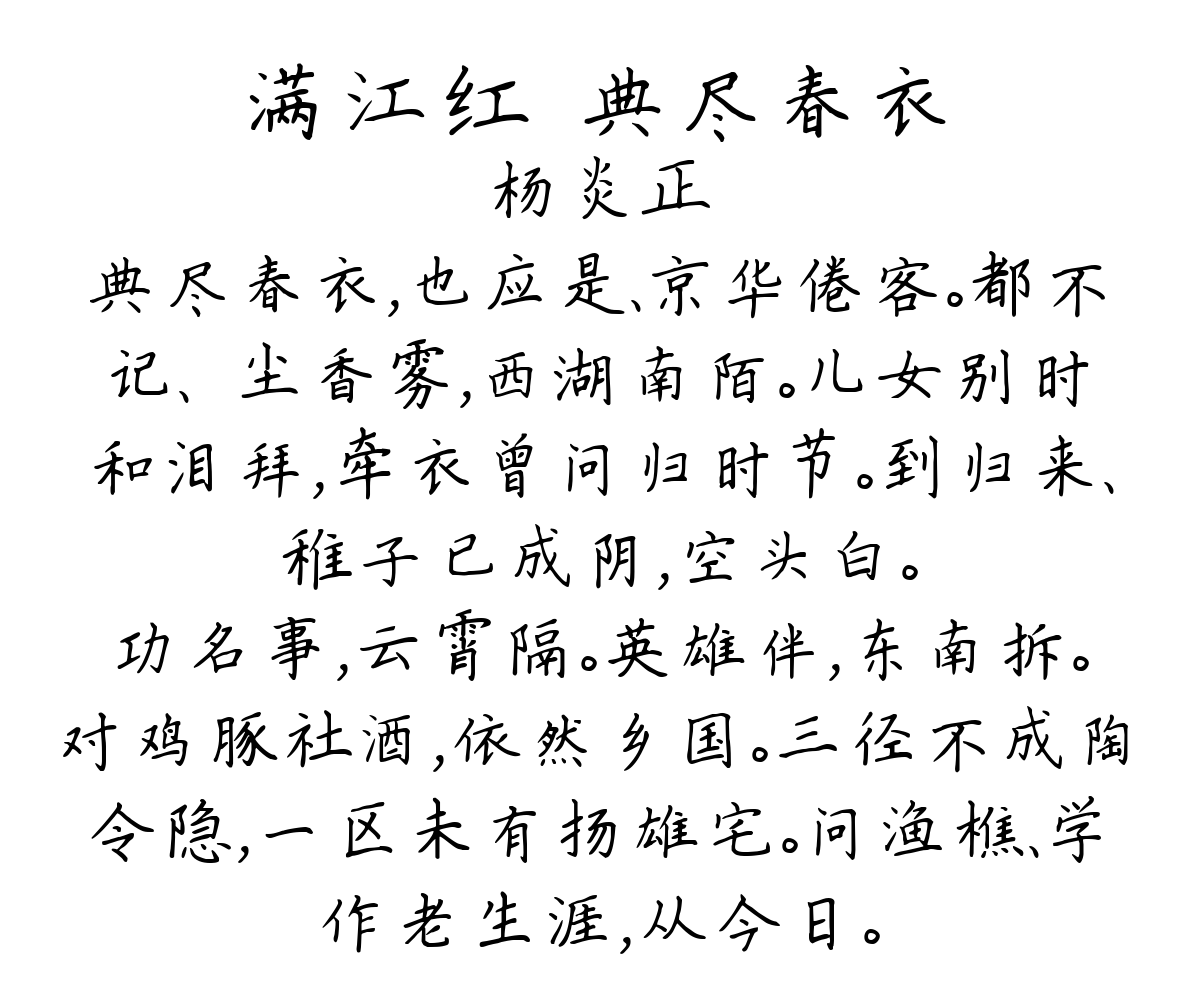 满江红 典尽春衣
杨炎正
典尽春衣,也应是、京华倦客。都不
记、尘香雾,西湖南陌。儿女别时
和泪拜,牵衣曾问归时节。到归来、
稚子已成阴,空头白。
功名事,云霄隔。英雄伴,东南拆。
对鸡豚社酒,依然乡国。三径不成陶
令隐,一区未有扬雄宅。问渔樵、学
作老生涯,从今日。